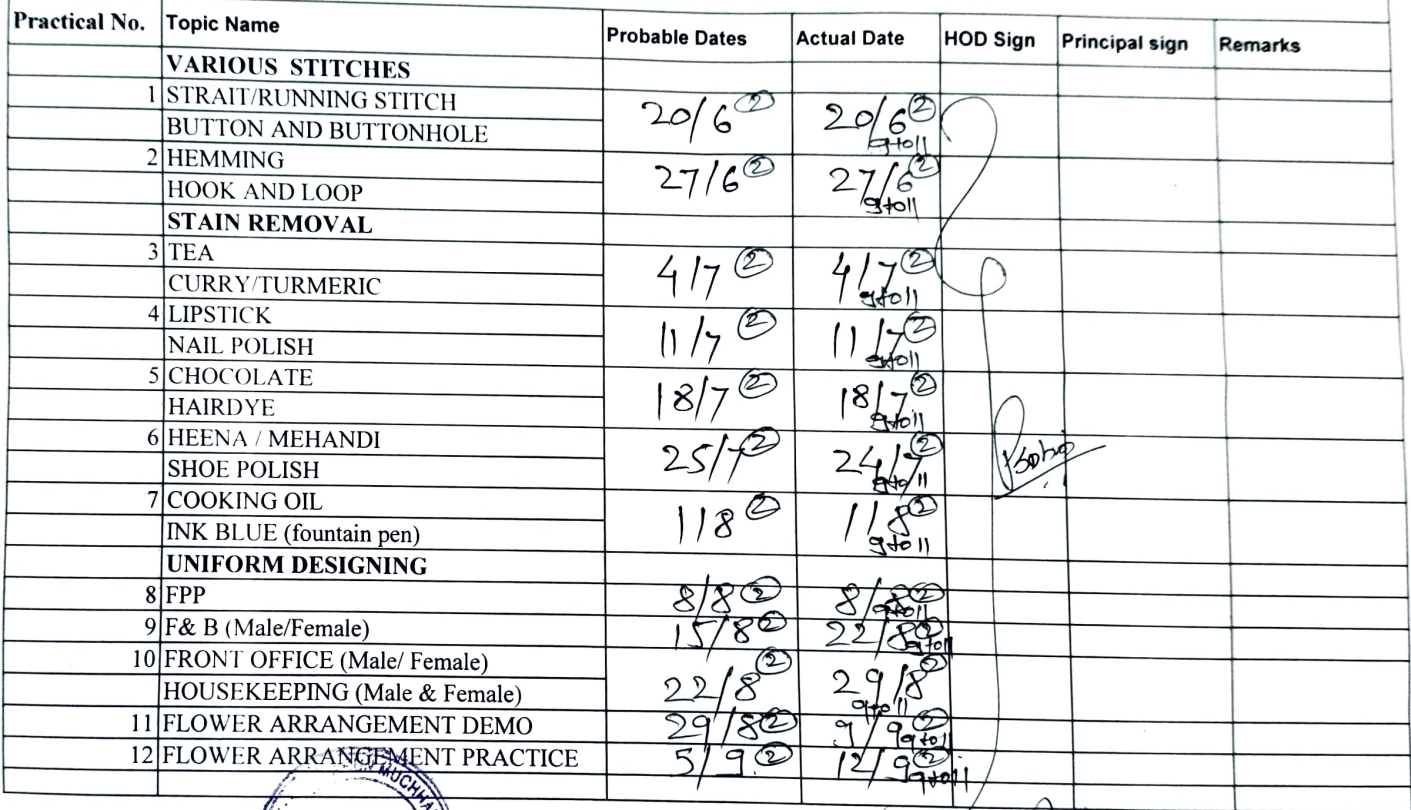 Practical No. Topic Name Probable Dates Actual Date HOD Sign Principal sign Remarks
VARIOUS STITCHES
1 STRAIT/RUNNING STITCH 20/6 ② 20/6 ②
BUTTON AND BUTTONHOLE 9to11
2 HEMMING 27/6 ② 27/6 ②
HOOK AND LOOP 9to11
STAIN REMOVAL
3 TEA 4/7 ② 4/7 ②
CURRY/TURMERIC 9to11
4 LIPSTICK 11/7 ② 11/7 ②
NAIL POLISH 9to11
5 CHOCOLATE 18/7 ② 18/7 ②
HAIRDYE 9to11
6 HEENA / MEHANDI 25/7 ② 24/7 ②
SHOE POLISH 9to11
7 COOKING OIL 1/8 ② 1/8 ②
INK BLUE (fountain pen) 9to11
UNIFORM DESIGNING
8 FPP 8/8 ② 8/8 ② 9to11
9 F& B (Male/Female) 15/8 ② 22/8 ② 9to11
10 FRONT OFFICE (Male/ Female) 22/8 ② 29/8 ②
HOUSEKEEPING (Male & Female) 9to11
11 FLOWER ARRANGEMENT DEMO 29/8 ② 9/9 ② 9to11
12 FLOWER ARRANGEMENT PRACTICE 5/9 ② 12/9 ② 9to11